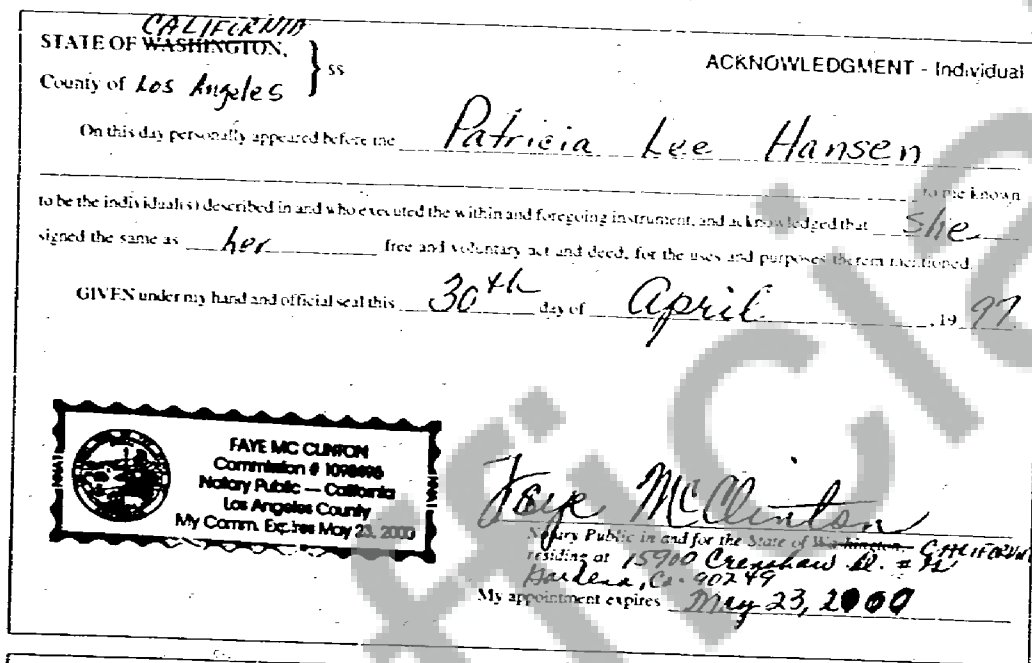 CALIFORNIA
STATE OF WASHINGTON,
County of Los Angeles } ss
ACKNOWLEDGMENT - Individual
On this day personally appeared before me Patricia Lee Hansen
to me known
to be the individual(s) described in and who executed the within and foregoing instrument, and acknowledged that she
signed the same as her free and voluntary act and deed, for the uses and purposes therein mentioned.
GIVEN under my hand and official seal this 30th day of April, 19 97.
FAYE MC CLINTON
Commission # 1098496
Notary Public — California
Los Angeles County
My Comm. Expires May 23, 2000
NNA1
NNA1
Faye McClinton
Notary Public in and for the State of Washington CALIFORNIA
residing at 15900 Crenshaw Bl. #
Gardena, Ca. 90249
My appointment expires May 23, 2000